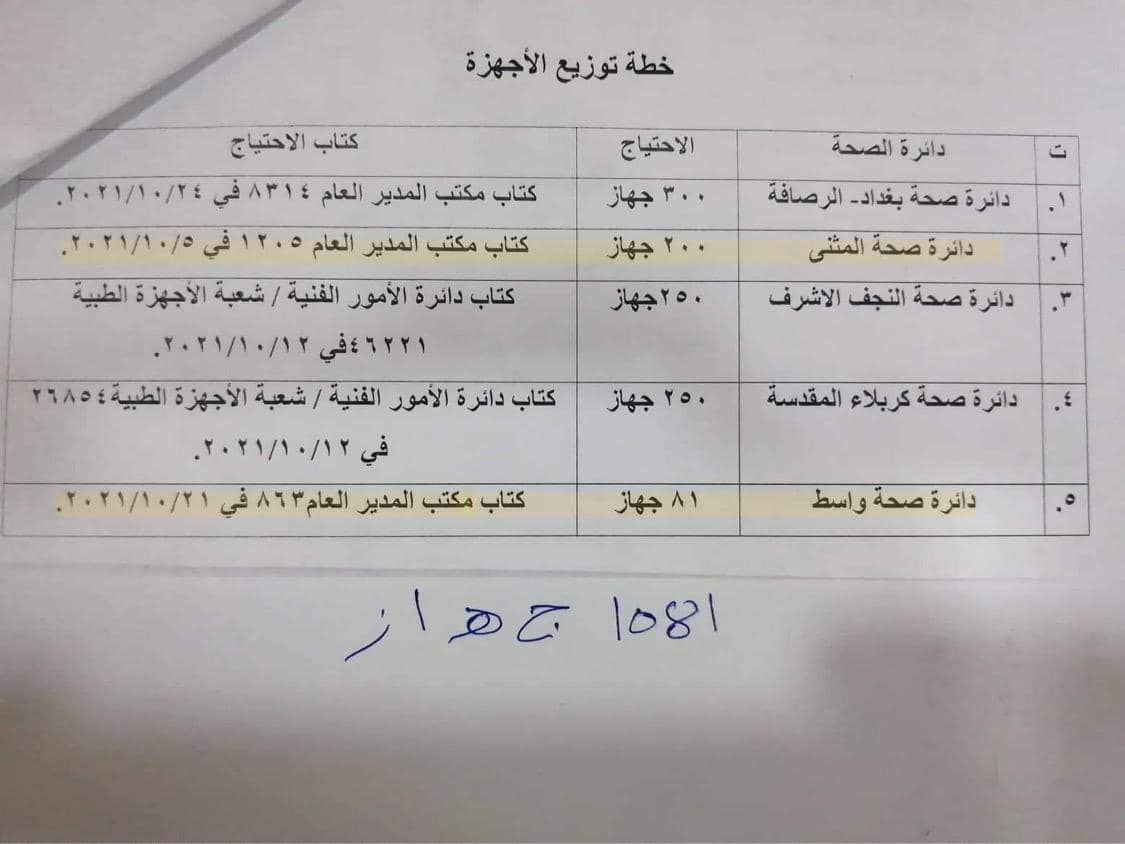 خطة توزيع الأجهزة
ت دائرة الصحة الاحتياج كتاب الاحتياج
١. دائرة صحة بغداد- الرصافة ٣٠٠ جهاز كتاب مكتب المدير العام ٨٣١٤ في ٢٠٢١/١٠/٢٤.
٢. دائرة صحة المثنى ٢٠٠ جهاز كتاب مكتب المدير العام ١٢٠٥ في ٢٠٢١/١٠/٥.
٣. دائرة صحة النجف الاشرف ٢٥٠جهاز كتاب دائرة الأمور الفنية / شعبة الأجهزة الطبية
٤٦٢٢١في ٢٠٢١/١٠/١٢.
٤. دائرة صحة كربلاء المقدسة ٢٥٠ جهاز كتاب دائرة الأمور الفنية / شعبة الأجهزة الطبية٢٦٨٥٤
في ٢٠٢١/١٠/١٢.
٥. دائرة صحة واسط ٨١ جهاز كتاب مكتب المدير العام٨٦٣ في ٢٠٢١/١٠/٢١.
1081 جهاز